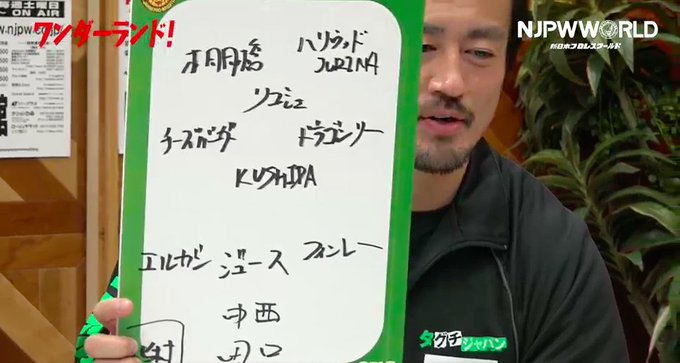 毎週土曜日
ON AIR
ワンダーランド!
NJPWWORLD
新日本プロレスワールド
棚橋 ハリウッド
JURINA
リコシェ
ドラゴンリー
KUSHIDA
エルガン ジュース フィンレー
中西
田口
タグチジャパン